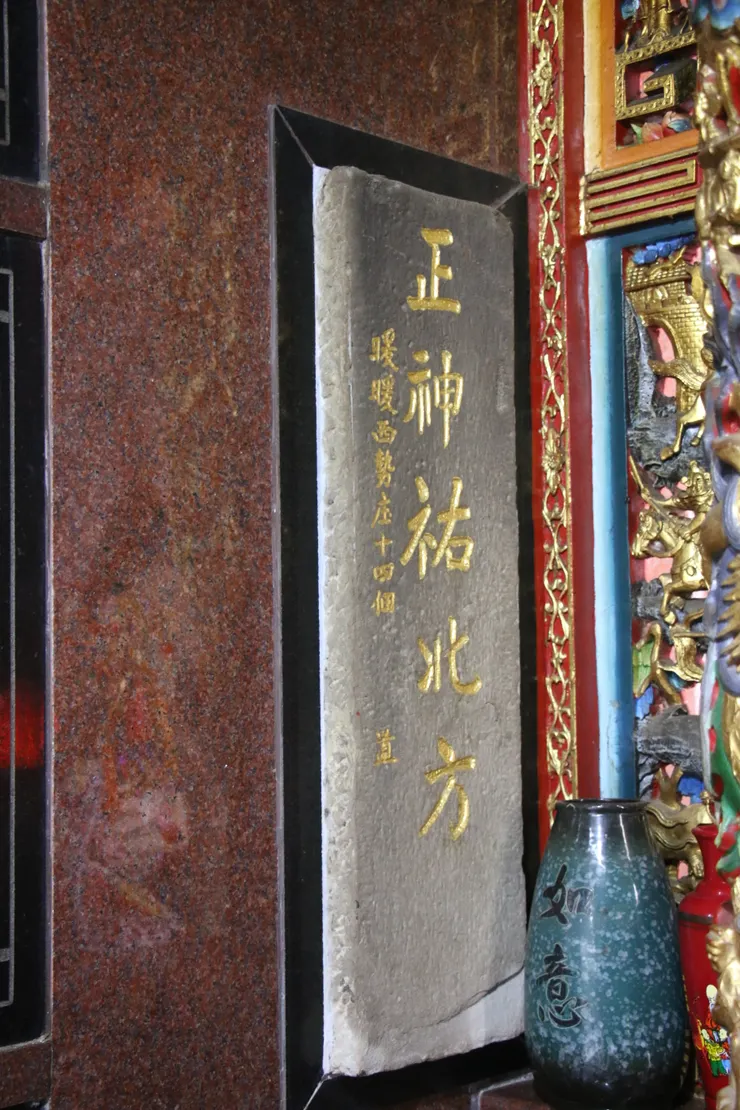 正神祐北方
暖暖西勢庄十四個 苴
如意